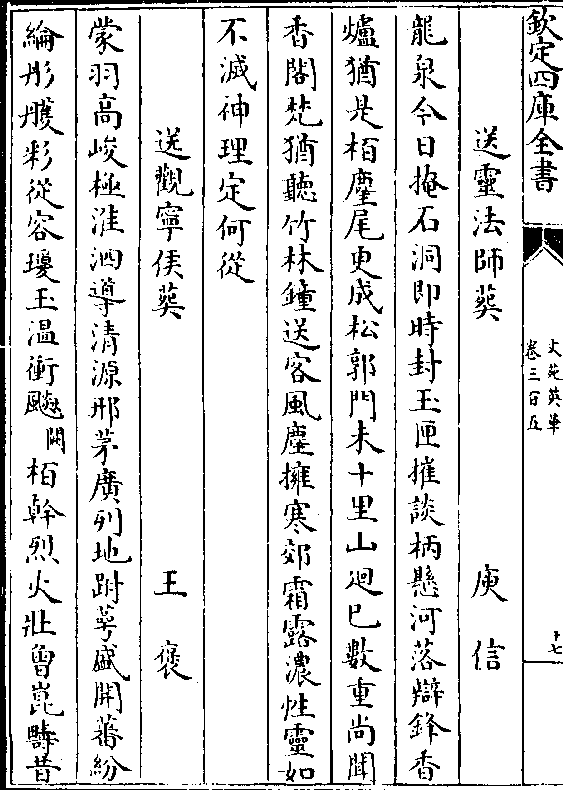 欽定四庫全書
文苑英華
卷三百五
十七
送靈法師葬 庾信
龍泉今日掩石洞即時封玉匣摧談柄懸河落辯鋒香
爐猶是栢麈尾更成松郭門未十里山廻已數重尚聞
香閣梵猶聽竹林鐘送客風塵擁寒郊霜露濃性靈如
不滅神理定何從
送觀寧侯葬 王褒
蒙羽高峻極淮泗導清源邢茅廣列地跗萼盛開蕃紛
綸彤雘彩從容瓊玉溫衝飈闕栢幹烈火壯曾崑疇昔